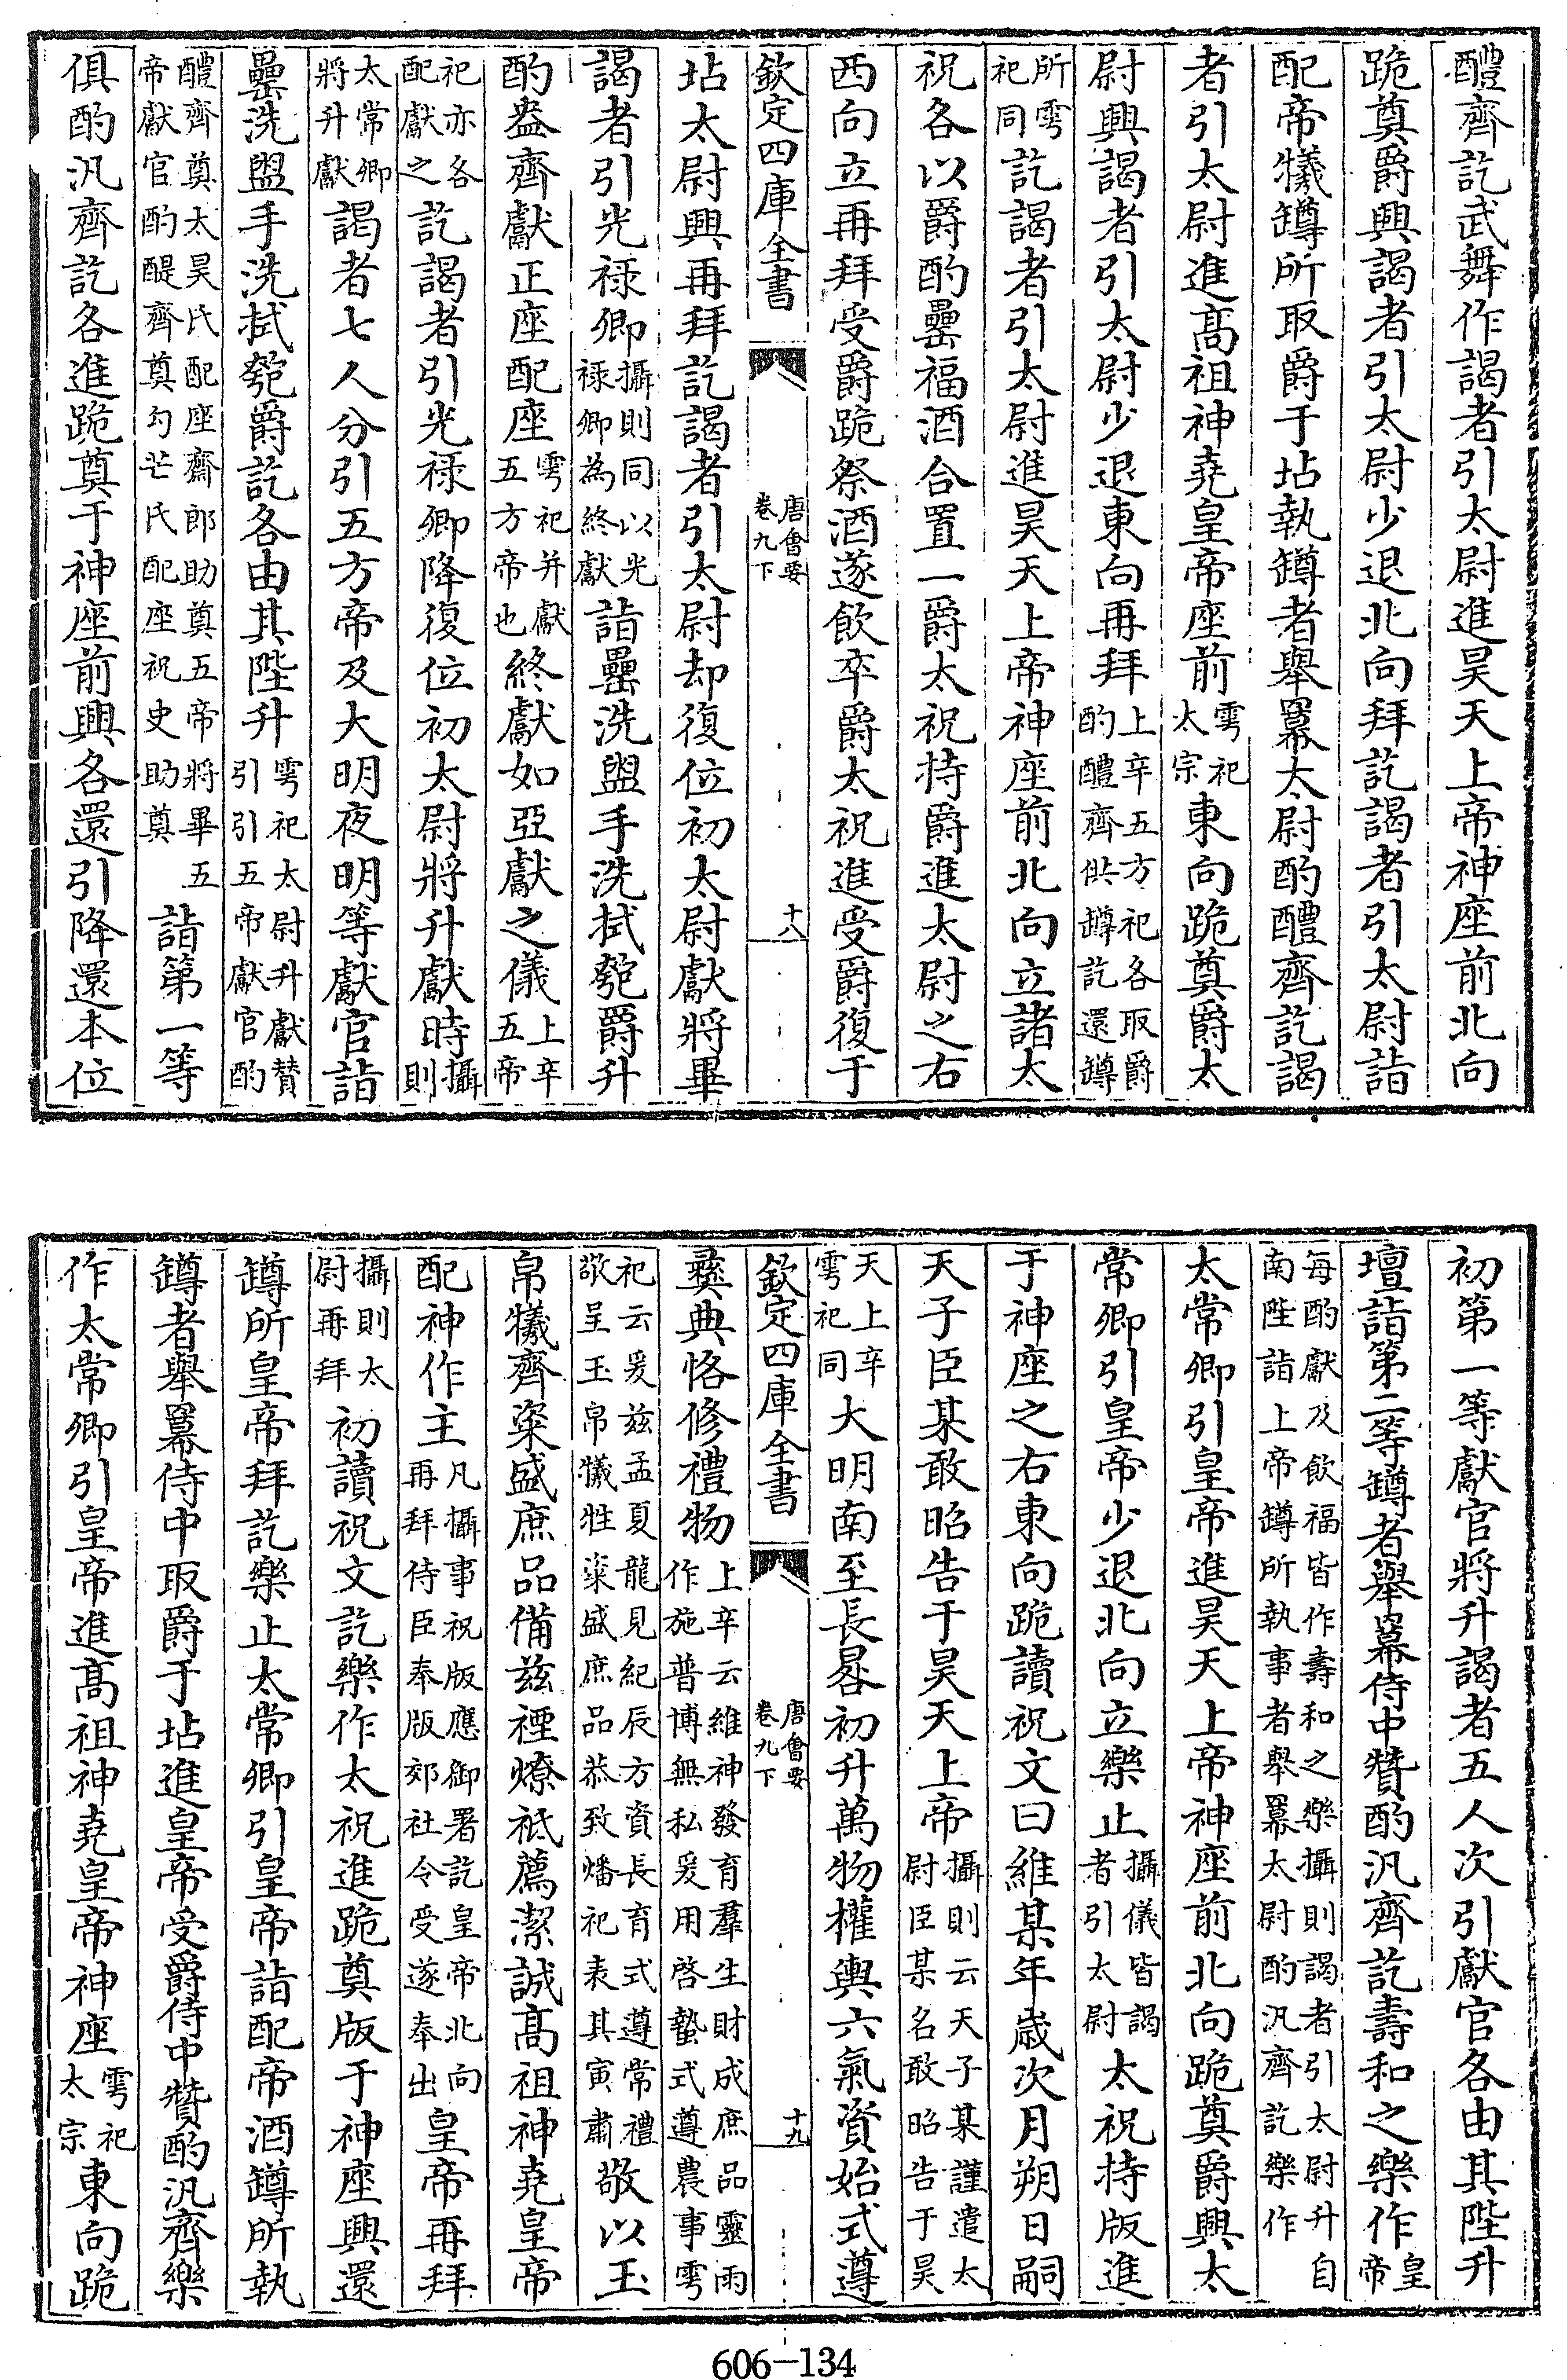 醴齊訖武舞作謁者引太尉進昊天上帝神座前北向
跪奠爵興謁者引太尉少退北向拜訖謁者引太尉詣
配帝犧罇所取爵于坫執罇者舉羃太尉酌醴齊訖謁
者引太尉進髙祖神堯皇帝座前雩祀太宗東向跪奠爵太
尉興謁者引太尉少退東向再拜上辛五方祀各取爵酌醴齊供罇訖還罇
所雩祀同訖謁者引太尉進昊天上帝神座前北向立諸太
祝各以爵酌罍福酒合置一爵太祝持爵進太尉之右
西向立再拜受爵跪祭酒遂飲卒爵太祝進受爵復于
欽定四庫全書 唐會要卷九下 十八
坫太尉興再拜訖謁者引太尉却復位初太尉獻將畢
謁者引光禄卿攝則同以光禄卿為終獻詣罍洗盥手洗拭匏爵升
酌盎齊獻正座配座雩祀并獻五方帝也終獻如亞獻之儀上辛五帝
祀亦各配獻之訖謁者引光禄卿降復位初太尉將升獻時攝則
太常卿將升獻謁者七人分引五方帝及大明夜明等獻官詣
罍洗盥手洗拭匏爵訖各由其陛升雩祀太尉升獻贊引引五帝獻官酌
醴齊奠太昊氏配座齋郎助奠五帝將畢五帝獻官酌醍齊奠勾芒氏配座祝史助奠詣第一等
俱酌汎齊訖各進跪奠于神座前興各還引降還本位
初第一等獻官將升謁者五人次引獻官各由其陛升
壇詣第二等罇者舉羃侍中贊酌汎齊訖壽和之樂作皇帝
每酌獻及飲福皆作壽和之樂攝則謁者引太尉升自南陛詣上帝罇所執事者舉羃太尉酌汎齊訖樂作
太常卿引皇帝進昊天上帝神座前北向跪奠爵興太
常卿引皇帝少退北向立樂止攝儀皆謁者引太尉太祝持版進
于神座之右東向跪讀祝文曰維某年歳次月朔日嗣
天子臣某敢昭告于昊天上帝攝則云天子某謹遣太尉臣某名敢昭告于昊
天上辛雩祀同大明南至長晷初升萬物權輿六氣資始式遵
欽定四庫全書 唐會要卷九下 十九
彝典恪修禮物上辛云維神發育羣生財成庶品靈雨作施普博無私爰用啓蟄式遵農事雩
祀云爰兹孟夏龍見紀辰方資長育式遵常禮敬呈玉帛犧牲粢盛庶品恭致燔祀表其寅肅敬以玉
帛犧齊粢盛庶品備兹禋燎祗薦潔誠髙祖神堯皇帝
配神作主凡攝事祝版應御署訖皇帝北向再拜侍臣奉版郊社令受遂奉出皇帝再拜
攝則太尉再拜初讀祝文訖樂作太祝進跪奠版于神座興還
罇所皇帝拜訖樂止太常卿引皇帝詣配帝酒罇所執
罇者舉羃侍中取爵于坫進皇帝受爵侍中贊酌汎齊樂
作太常卿引皇帝進髙祖神堯皇帝神座雩祀太宗東向跪
606-134